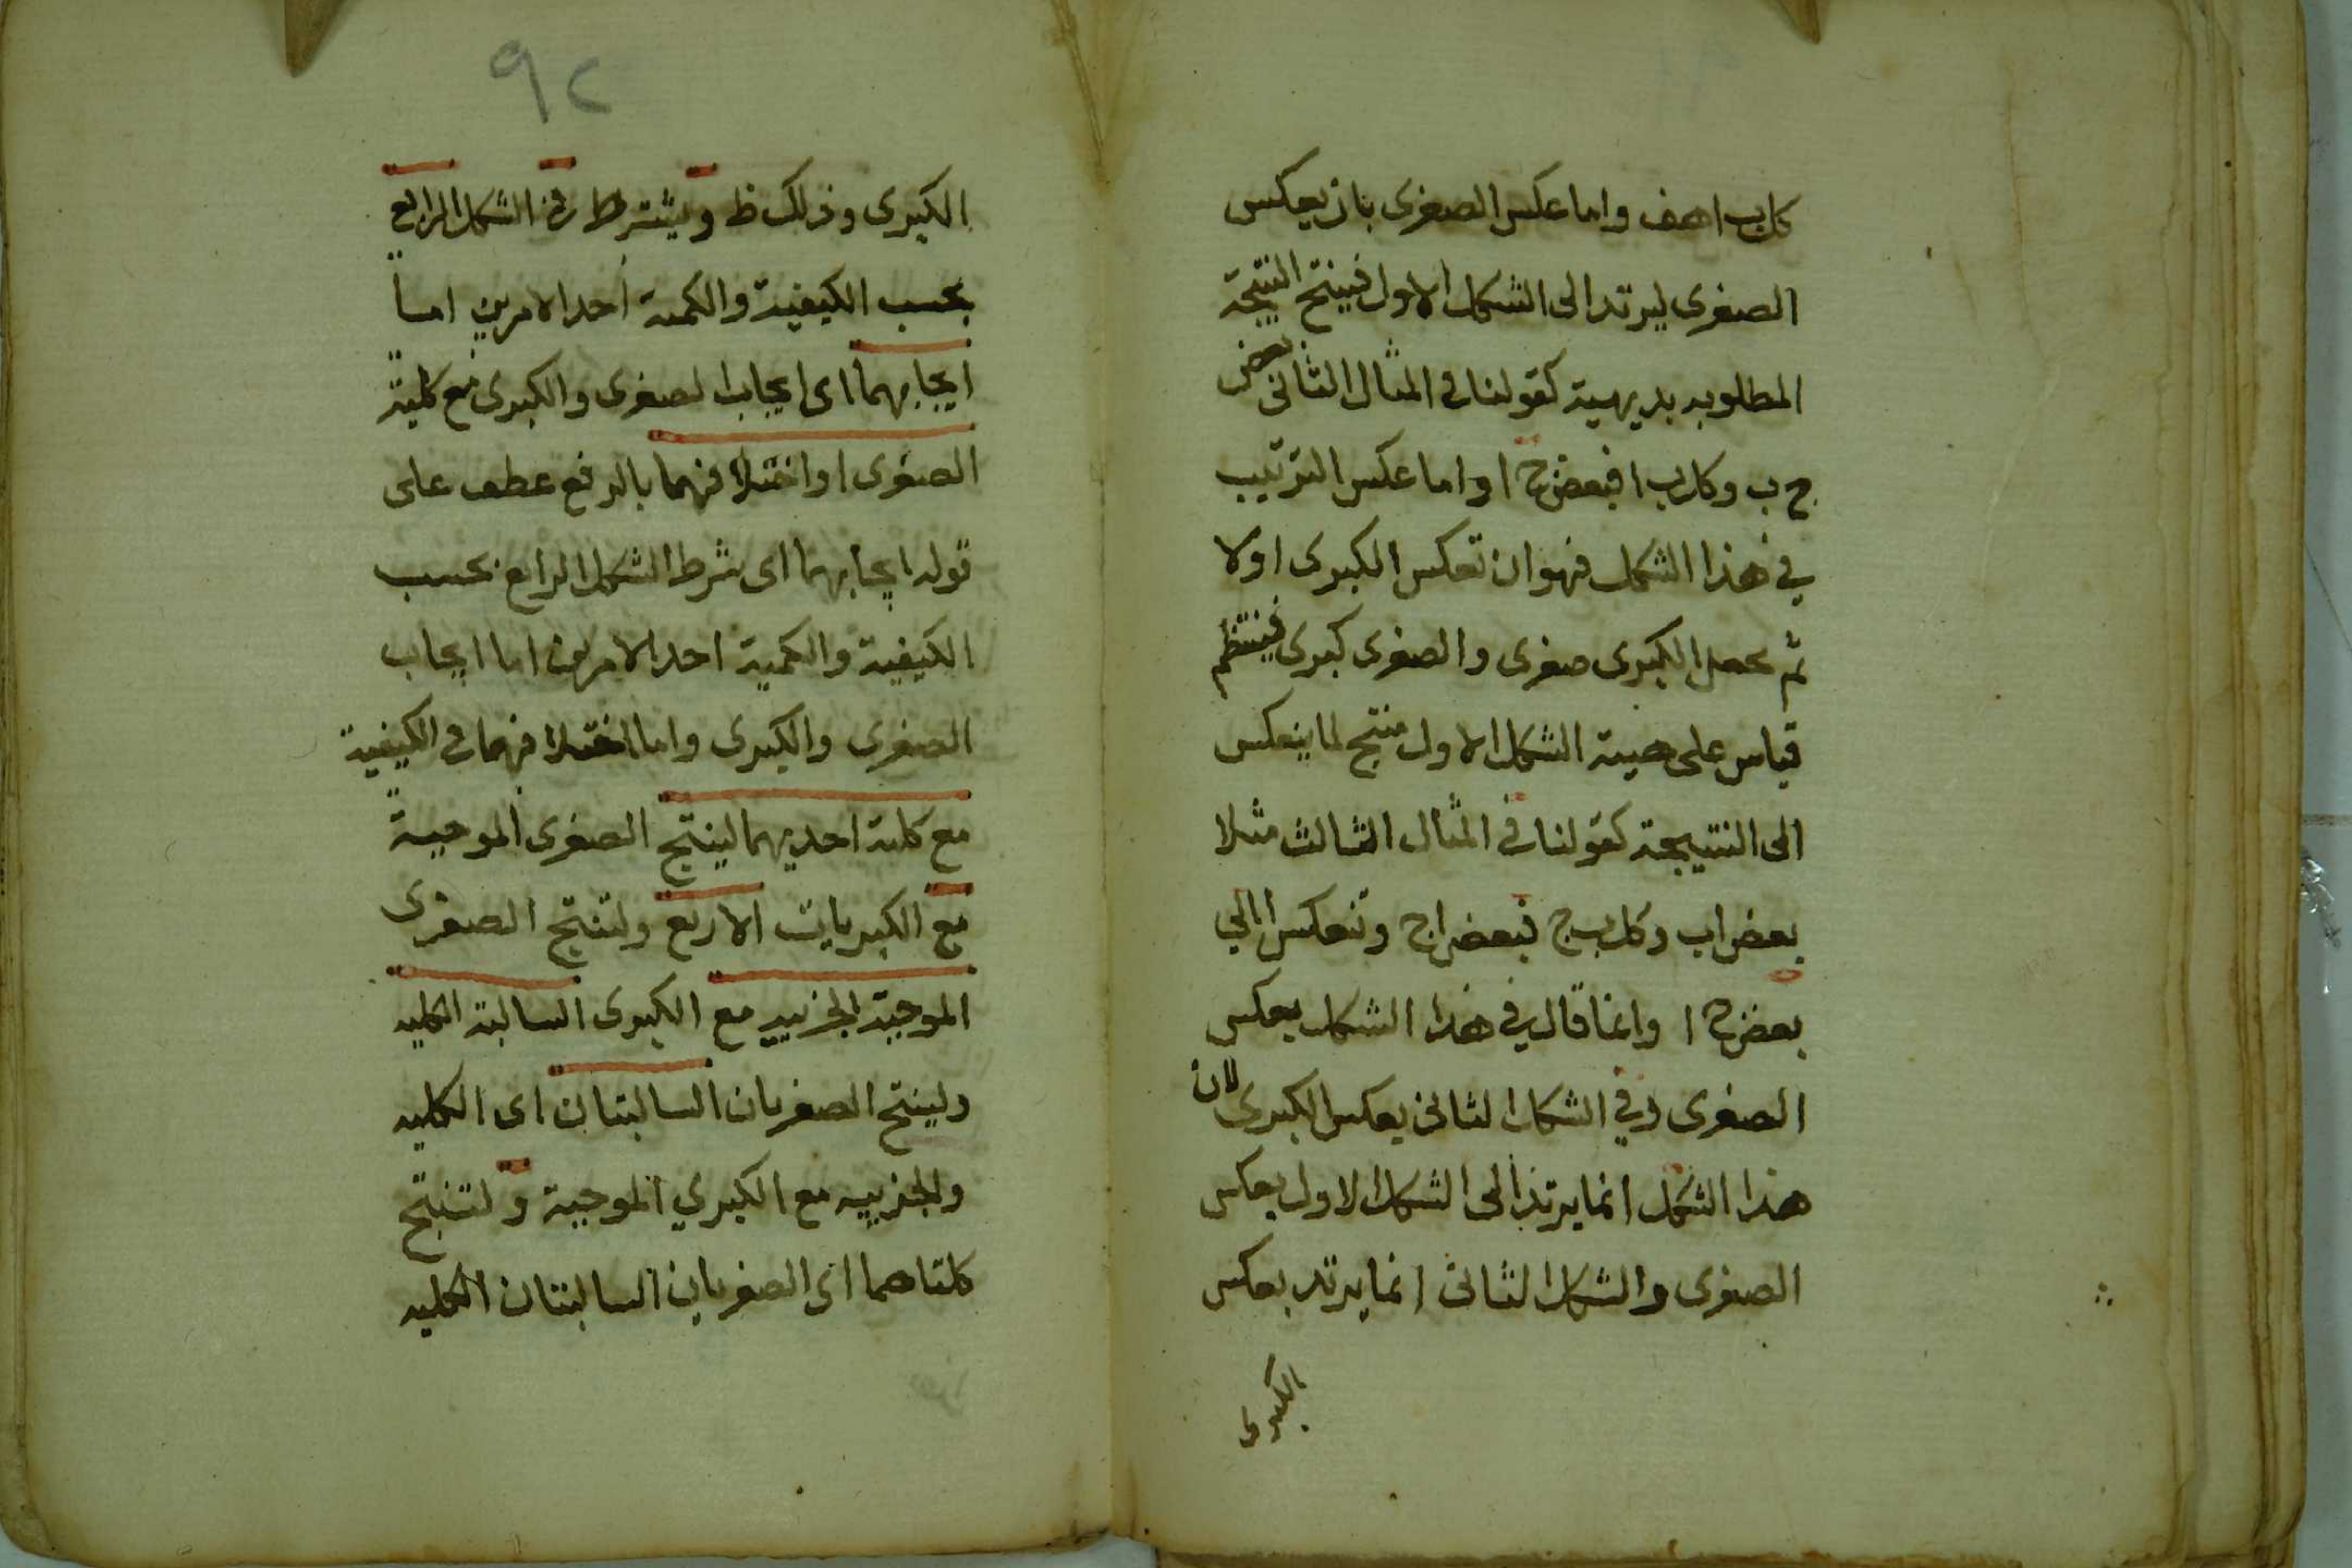 كل ب ا هف واما عكس الصغرى بان يعكس
الصغرى ليرتد الى الشكل الاول فينتج النتيجة
المطلوبه بديهية كقولنا في المثال الثانى بعض
ج ب وكل ب ا فبعض ج ا واما عكس الترتيب
في هذا الشكل فهو ان تعكس الكبرى اولا
ثم يجعل الكبرى صغرى والصغرى كبرى فينتظم
قياس على هيئة الشكل الاول منتج لما ينعكس
الى النتيجة كقولنا في المثال الثالث مثلا
بعض اب وكل ب ج فبعض ا ج وتنعكس الي
بعض ج ا وانما قال في هذا الشكل بعكس
الصغرى وفي الشكل الثانى بعكس الكبرى لان
هذا الشكل انما يرتد الى الشكل الاول بعكس
الصغرى والشكل الثانى انما يرتد بعكس
الكبرى
٩٢
الكبرى وذلك ظ ويشترط في الشكل الرابع
بحسب الكيفية والكمية احد الامرين اما
ايجابهما اى ايجاب الصغرى والكبرى مع كلية
الصغرى او اختلافهما بالرفع عطف على
قوله ايجابهما اى شرط الشكل الرابع بحسب
الكيفية والكمية احد الامرين اما ايجاب
الصغرى والكبرى واما اختلافهما في الكيفية
مع كلية احديهما لينتج الصغرى الموجبة
مع الكبريات الاربع ولتنتج الصغرى
الموجبة الجزئيه مع الكبرى السالبة الكليه
ولينتج الصغريان السالبتان اى الكليه
والجزئيه مع الكبري الموجبة ولتنتج
كلتاهما اى الصغريان السالبتان الكليه